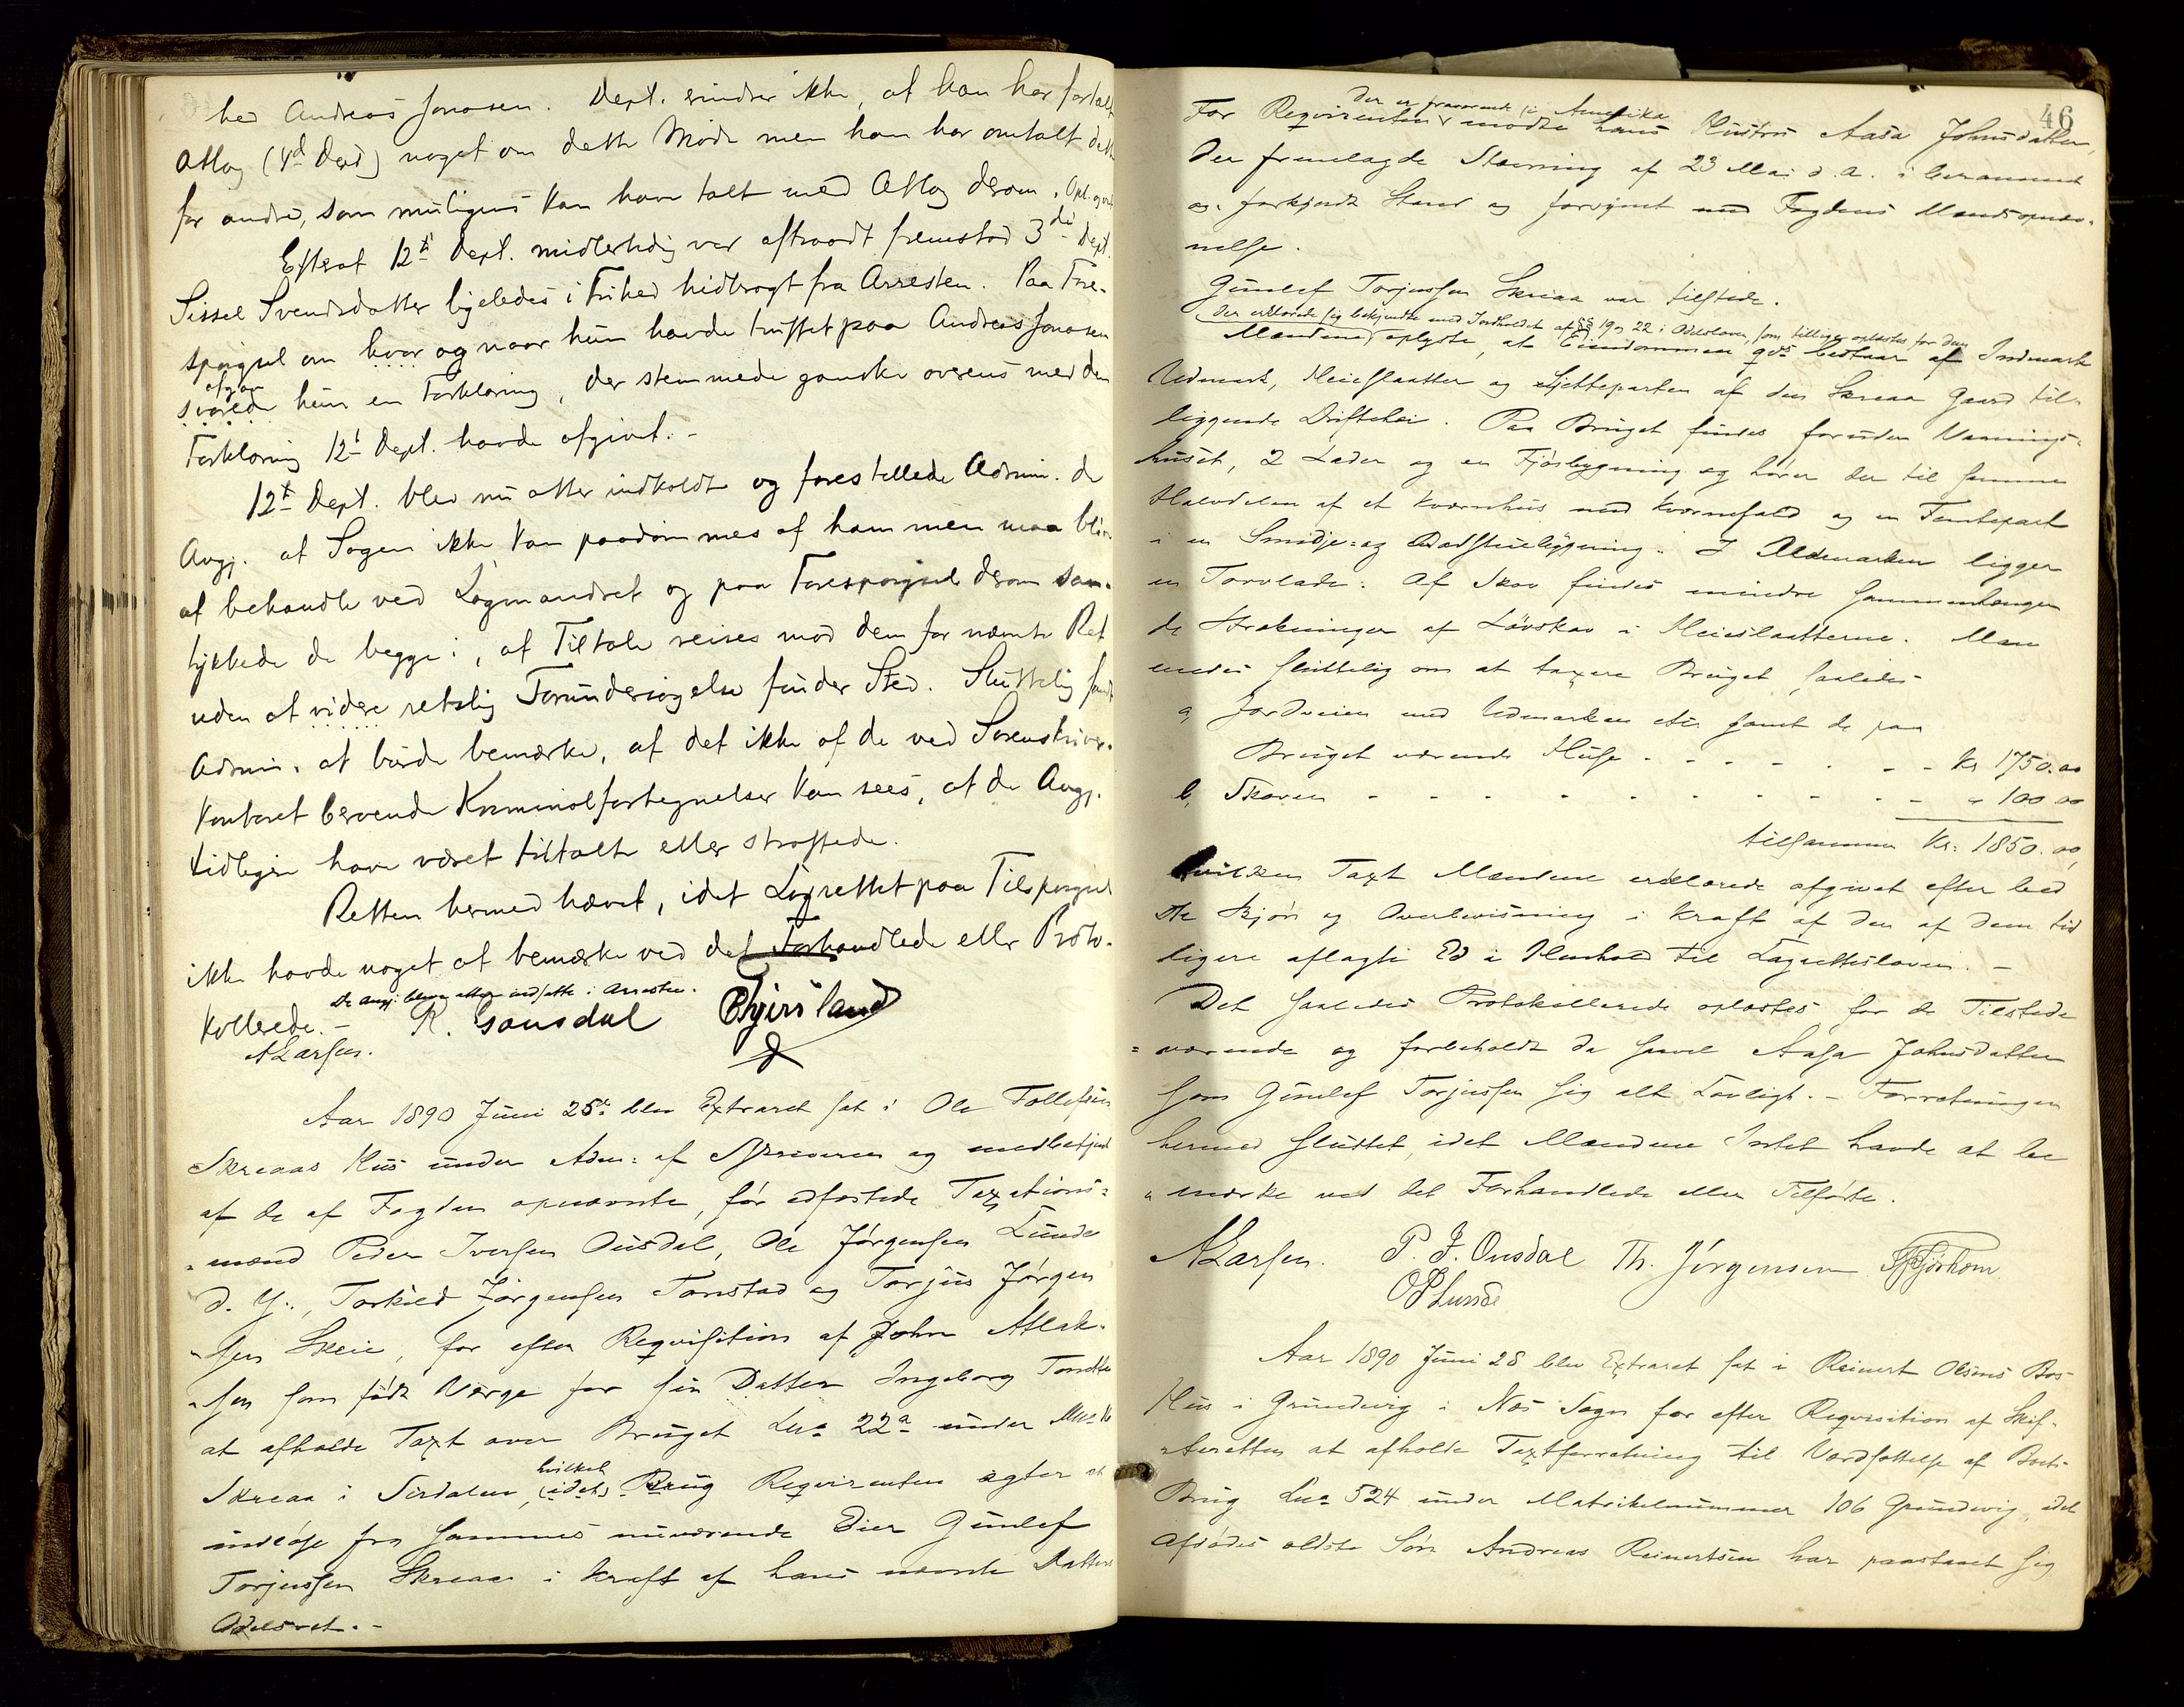 hed Andreas Jonasen. Dept. erindrer ikke, at han har fortalt
Atlag (4d Dept) noget om dette Møde men han har omtalt dette
for andre, som muligens kan have talt med Atlag derom. Opl. og ved.
Efterat 12te Dept. midlertidig var aftraadt fremstod 3die Dept.
Sissel Svendsdatter ligeledes i Frihed hidbragt fra Arresten. Paa Fore-
spørgsel om hvor og naar hun havde truffet paa Andreas Jonasen
afgav
svarede hun en Forklaring, der stemmede ganske overens med den
Forklaring 12te Dept. havde afgivet. -
12te Dept. blev nu atter indkaldt og forestillede Admin. de
Angj. at Sagen ikke kan paadømmes af ham men maa blive
at behandle ved Lagmandsret og paa Forespørgsel derom sam-
tykkede de begge i, at Tiltale reises mod dem for nævnte Ret
uden at videre retslig Forundersøgelse finder Sted. Sluttelig fandt
Admin. at burde bemærke, at det ikke af de ved Sorenskriver-
kontoret beroende Kriminalfortegnelser kan sees, at de Angj.
tidligere have været tiltalte eller straffede.
Retten hermed hævet, idet Lagrettet paa Tilspørgsel
ikke havde noget at bemærke ved det Forhandlede eller Proto-
De Angj. bleve atter indsatte i Arresten.
kollerede. - R. Gausdal
ALarsen.
Aar 1890 Juni 25de blev Extraret sat i Ole Tollefsen
Skreaas Hus under Adm: af Skriveren og medbetjent
af de af Fogden opnævnte, før edfæstede Taxations=
mænd Peder Iversen Ousdal, Ole Jørgensen Lunde
d. Y., Torkild Jørgensen Tonstad og Torjus Jørgen
=sen Skeie, for efter Requisition af John Atlak-
=sen som født Værge for sin Datter Ingeborg Tondtte
at afholde Taxt over Bruget Lno 22a under Mno 16
hvilket
Skreaa i Sirdalen, (idet) Brug Requirenten agter at
indløse fra sammes nuværende Eier Gunlef
Torjussen Skreaa i Kraft af hans nævnte Datters
Odelsret. -
46
der er fraværende i Amerika
For Requirenten mødte hans Hustru Aasa Johnsdatter,
der fremlagde Stævning af 23 Mai d. a. i beramment
og forkyndt Stand og forsynet med Fogdens Mandsopnæv-
nelse.
Gunlef Torjussen Skreaa var tilstede.
der erklærede sig bekjendte med Indholdet af §§ 19 og 22 i Odelsloven, som tillige oplæstes for dem
Mændene oplyste, at Eiendommen qvs bestaar af Indmark
Udmark, Heieslaatter og Sjetteparten af den Skreaa Gaard til-
liggende Driftehei. Paa Bruget findes foruden Vaanings-
huset, 2 Lader og en Fjøsbygning og hører der til samme
Halvdelen af et Kværnhus med Kværnefald og en Femtepart
i en Smidje= og Badstuebygning. I Udmarken ligger
en Torvlade. Af Skov findes mindre sammenhængen
de Strækninger af Løvskov i Heieslaatterne. Man
enedes sluttelig om at taxere Bruget saaledes
a, Jordveien med Udmarken etc. samt de paa
Bruget værende Huse - - - - - - Kr 1750.00
b, Skoven - - - - - - - - - - " 100 00
tilsammen Kr: 1850.00,
hvilken Taxt Mændene erklærede afgivet efter bed
ste Skjøn og Overbevisning i Kraft af den af dem tid
ligere aflagte Ed i Henhold til Lagrettesloven. -
Det saaledes Protokollerede oplæstes for de Tilstede
=værende og forbeholdt da saavel Aasa Johnsdatter
som Gunlef Torjussen sig alt Lovligt. - Forretningen
hermed sluttet, idet Mændene Intet havde at be
=mærke ved det Forhandlede eller Tilførte.
ALarsen. P. J. Ousdal Th. Jørgensen
Lunde
Aar 1890 Juni 28 blev Extraret sat i Reinert Olsens Bos
Hus i Grundevig i Næs Sogn for efter Requisition af Skif-
=teretten at afholde Taxtforretning til Værdsættelse af Boets
Brug Lno 524 under Matrikelnummer 106 Grundevig, idet
Afdødes ældste Søn Andreas Reinertsen har paastaaet sig